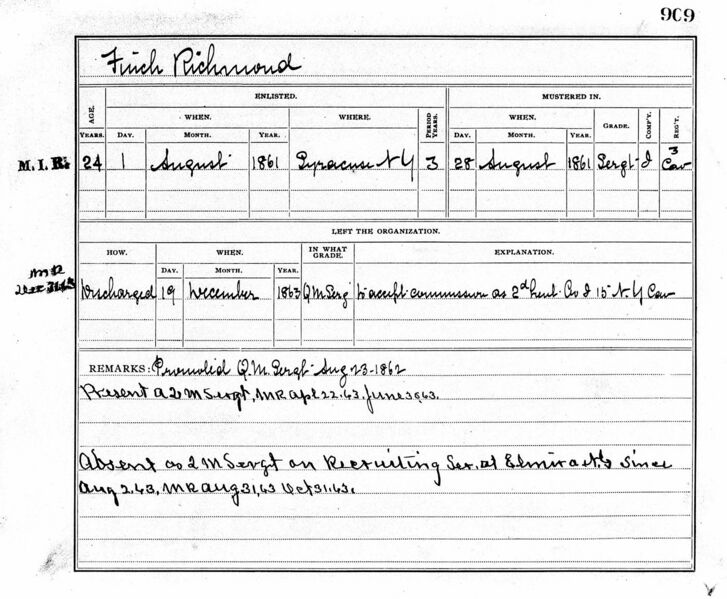 909
Finch Richmond
ENLISTED. MUSTERED IN.
AGE. WHEN. WHERE. PERIOD YEARS. WHEN. GRADE. COMP'Y. REG'T.
YEARS. DAY. MONTH. YEAR. DAY. MONTH. YEAR.
M.I.R. 24 1 August 1861 Syracuse N Y 3 28 August 1861 Sergt I 3 Cav
LEFT THE ORGANIZATION.
HOW. WHEN. IN WHAT GRADE. EXPLANATION.
DAY. MONTH. YEAR.
MR
Dec 31 63
Discharged 19 December 1863 Q M Serg to accept commission as 2d Lieut Co I 15 N. Y Cav
REMARKS: Promoted Q. M. Sergt Aug 23-1862
Present as Q M Sergt, MR Apl 22.63. June 30,63.
Absent as Q M Sergt on Recruiting Ser. at Elmira N.Y since
Aug 2.63, MR Aug 31,63 Oct 31.63.